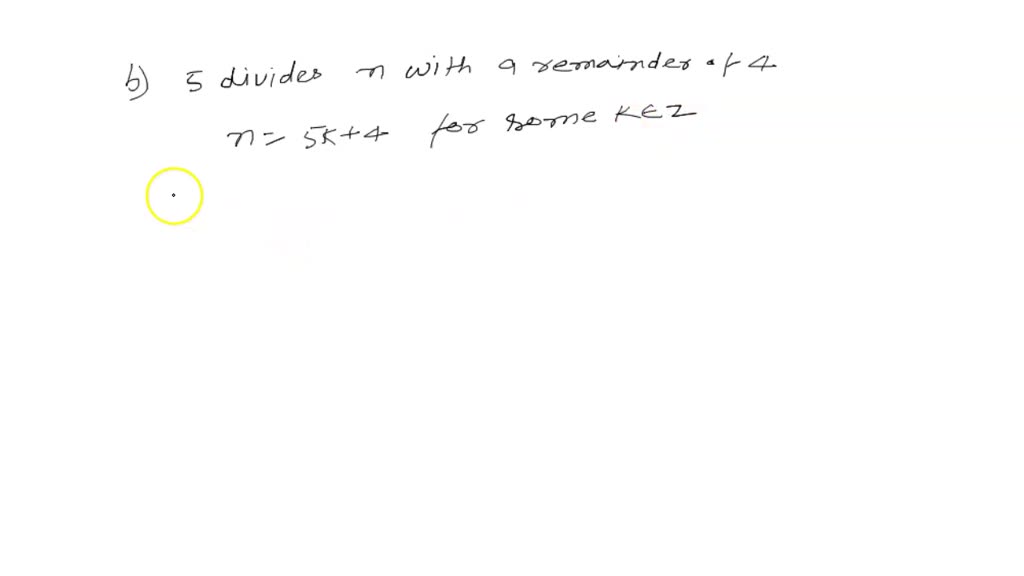 b) 5 divides n with a remainder of 4
n = 5k+4 for some k ∈ Z